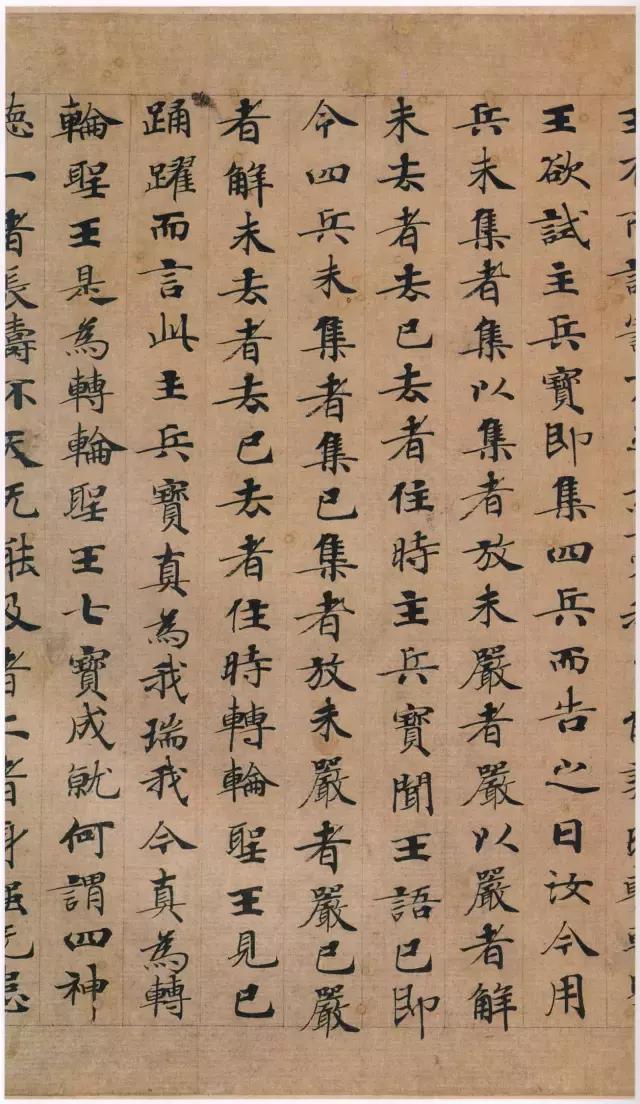 王欲試主兵寶即集四兵而告之曰汝今用
兵未集者集以集者放未嚴者嚴以嚴者解
未去者去已去者住時主兵寶聞王語已即
令四兵未集者集已集者放未嚴者嚴已嚴
者解未去者去已去者住時轉輪聖王見已
踊躍而言此主兵寶真為我瑞我今真為轉
輪聖王是為轉輪聖王七寶成就何謂四神
德一者長壽不夭无能及者二者身强无